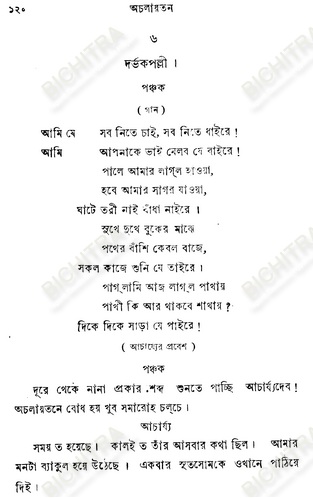 ১২০ অচলায়তন
৬
দর্ভকপল্লী।
পঞ্চক
( গান )
আমি যে সব নিতে চাই, সব নিতে ধাইরে!
আমি আপনাকে ভাই মেলব যে বাইরে!
পালে আমার লাগ্‌ল হাওয়া,
হবে আমার সাগর যাওয়া,
ঘাটে তরী নাই বাঁধা নাইরে।
সুখে দুখে বুকের মাঝে
পথের বাঁশি কেবল বাজে,
সকল কাজে শুনি যে তাইরে।
পাগ্‌লামি আজ লাগ্‌ল পাখায়
পাখী কি আর থাকবে শাখায়?
দিকে দিকে সাড়া যে পাইরে!
( আচার্য্যের প্রবেশ )
পঞ্চক
দূরে থেকে নানা প্রকার শব্দ শুনতে পাচ্ছি আচার্য্যদেব!
অচলায়তনে বোধ হয় খুব সমারোহ চল্‌চে।
আচার্য্য
সময় ত হয়েছে। কালই ত তাঁর আসবার কথা ছিল। আমার
মনটা ব্যাকুল হয়ে উঠেছে। একবার সুতসোমকে ওখানে পাঠিয়ে
দিই।
BICHITRA